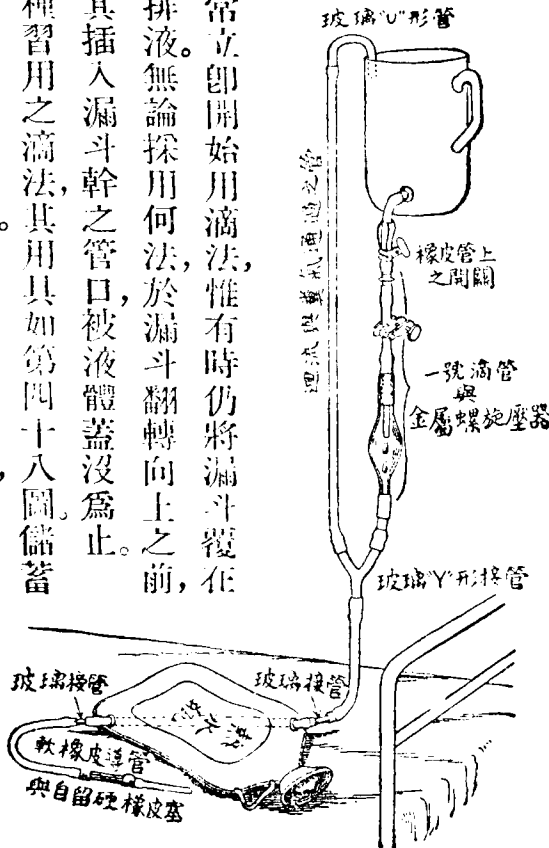 常立卽開始用滴法,惟有時仍將漏斗覆在
排液。無論採用何法,於漏斗翻轉向上之前,
其插入漏斗幹之管口,被液體蓋沒爲止。
種習用之滴法,其用具如第四十八圖。儲蓄
玻璃"U"形管
逆流與囊氣通過之管
橡皮管上
之開關
一號滴管
與
金屬螺旋壓器
玻璃"Y"形接管
玻璃接管
玻璃接管
熱水袋
軟橡皮導管
與自留硬橡皮塞